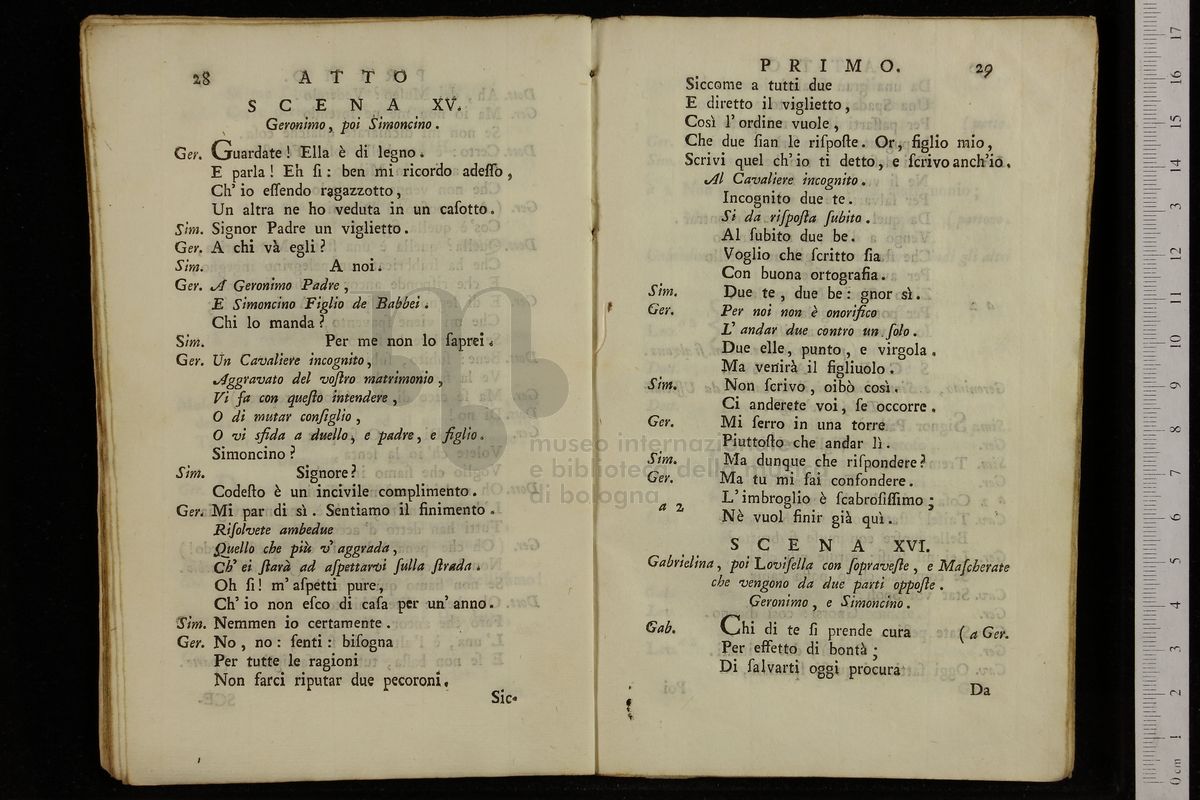 28 ATTO
SCENA XV.
Geronimo, poi Simoncino.
Ger. Guardate! Ella è di legno.
E parla! Eh ſi: ben mi ricordo adeſſo,
Ch' io eſſendo ragazzotto,
Un altra ne ho veduta in un caſotto.
Sim. Signor Padre un viglietto.
Ger. A chi và egli?
Sim. A noi.
Ger. A Geronimo Padre,
E Simoncino Figlio de Babbei.
Chi lo manda?
Sim. Per me non lo ſaprei.
Ger. Un Cavaliere incognito,
Aggravato del voſtro matrimonio,
Vi fa con queſto intendere,
O di mutar conſiglio,
O vi sfida a duello, e padre, e figlio.
Simoncino?
Sim. Signore?
Codeſto è un incivile complimento.
Ger. Mi par di sì. Sentiamo il finimento.
Riſolvete ambedue
Quello che più v' aggrada,
Ch' ei ſtarà ad aſpettarvi ſulla ſtrada.
Oh ſi! m' aſpetti pure,
Ch' io non eſco di caſa per un' anno.
Sim. Nemmen io certamente.
Ger. No, no: ſenti: biſogna
Per tutte le ragioni
Non farci riputar due pecoroni.
Sic-
PRIMO. 29
Siccome a tutti due
E diretto il viglietto,
Così l' ordine vuole,
Che due ſian le riſpoſte. Or, figlio mio,
Scrivi quel ch' io ti detto, e ſcrivo anch'io.
Al Cavaliere incognito.
Incognito due te.
Si da riſpoſta ſubito.
Al ſubito due be.
Voglio che ſcritto ſia
Con buona ortografia.
Sim. Due te, due be: gnor sì.
Ger. Per noi non è onorifico
L' andar due contro un ſolo.
Due elle, punto, e virgola.
Ma venirà il figliuolo.
Sim. Non ſcrivo, oibò così.
Ci anderete voi, ſe occorre.
Ger. Mi ſerro in una torre
Piuttoſto che andar lì.
Sim. Ma dunque che riſpondere?
Ger. Ma tu mi fai confondere.
a 2 L' imbroglio è ſcabroſiſſimo;
Nè vuol finir già quì.
SCENA XVI.
Gabrielina, poi Loviſella con ſopraveſte, e Maſcherate
che vengono da due parti oppoſte.
Geronimo, e Simoncino.
Gab. Chi di te ſi prende cura (a Ger.
Per effetto di bontà;
Di ſalvarti oggi procura
Da
museo internazionale
e biblioteca della musica
di bologna
0 cm 1 2 3 4 5 6 7 8 9 10 11 12 13 14 15 16 17